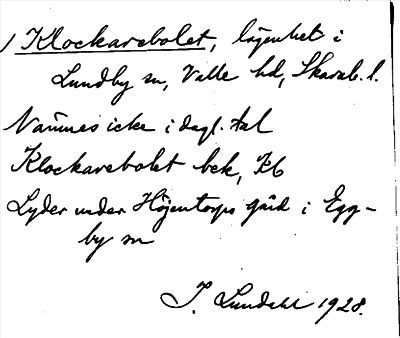 1 Klockarebolet, lägenhet i
Lundby sn, Valle hd, Skarab. l.
Nämnes icke i dagl. tal
Klockarebolet bek, Kb
Lyder under Höjentorps gård i Egg-
by sn
J. Lundahl 1928.